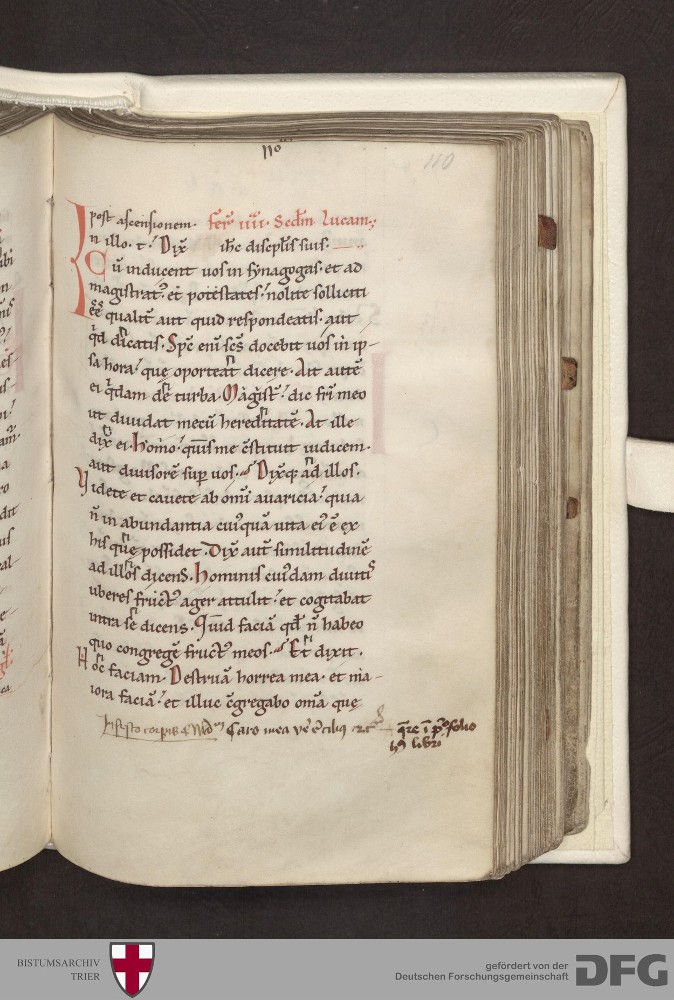 110
110
post ascensionem. fer̄ iiii. Scdm̄ lucam;
In illo. t. Dix̄ ih̄c discipl̄is suis.
Cū inducent uos in synagogas. et ad
magistrat᷒. et potestates. nolite solliciti
eē qualit̄ aut quid respondeatis. aut
qd̄ dicatis. Sp̄c enī sc̄s docebit uos in ip-
sa hora. que oporteat dicere. Ait autē
ei qdam de turba. Magist̄. dic fr̄i meo
ut diuidat mecū hereditatē. At ille
dix̄ ei. Homo. quis me c̄stituit iudicem.
aut diuisorē sup uos. Dixq; ad illos.
Videte et cauete ab om̄i auaricia. quia
n̄ in abundantia cui᷒quā uita ei᷒ ē ex
his quę possidet. Dix̄ aut̄ similitudinē
ad illos dicens. Hominis cui᷒dam diuitis
uberes fruct᷒ ager attulit. et cogitabat
intra se dicens. Quid faciā qd̄ n̄ habeo
quo congregē fruct᷒ meos. Et dixit.
Hoc faciam. Destruā horrea mea. et ma-
iora faciā. et illuc c̄gregabo om̄a quę
In festo corpis Caro mea ue᷒ ē cib᷒
qre ī p᷒o folio
h᷒ libri
BISTUMSARCHIV
TRIER
gefördert von der
Deutschen Forschungsgemeinschaft
DFG